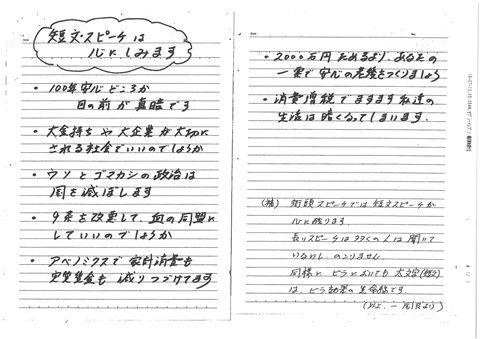 短文・スピーチは
心にしみます
・100年安心どころか
目の前が真暗です
・大金持ちや大企業が大切に
される社会でいいのでしょうか
・ウソとゴマカシの政治は
国を滅ぼします
・9条を改悪して、血の同盟に
していいのでしょうか
・アベノミクスで家計消費も
実質賃金も減りつづけてます
・2000万円ためるより、あなたの
一票で安心の老後をつくりましょう
・消費増税でますます私達の
生活は暗くなってしまいます。
(補) 街頭スピーチでは短文スピーチが
心に残ります。
長いスピーチは多くの人は聞いて
いないし、のこりません。
同様にビラにおいても太文字(短文)
は、ビラ効果の生命線です。
(以上、一市民より)